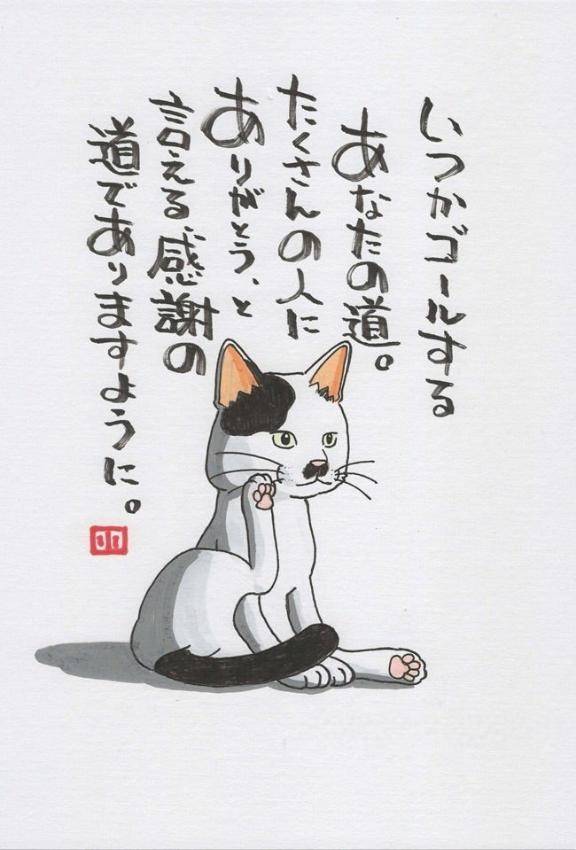 いつかゴールする
あなたの道。
たくさんの人に
ありがとう、と
言える感謝の
道でありますように。